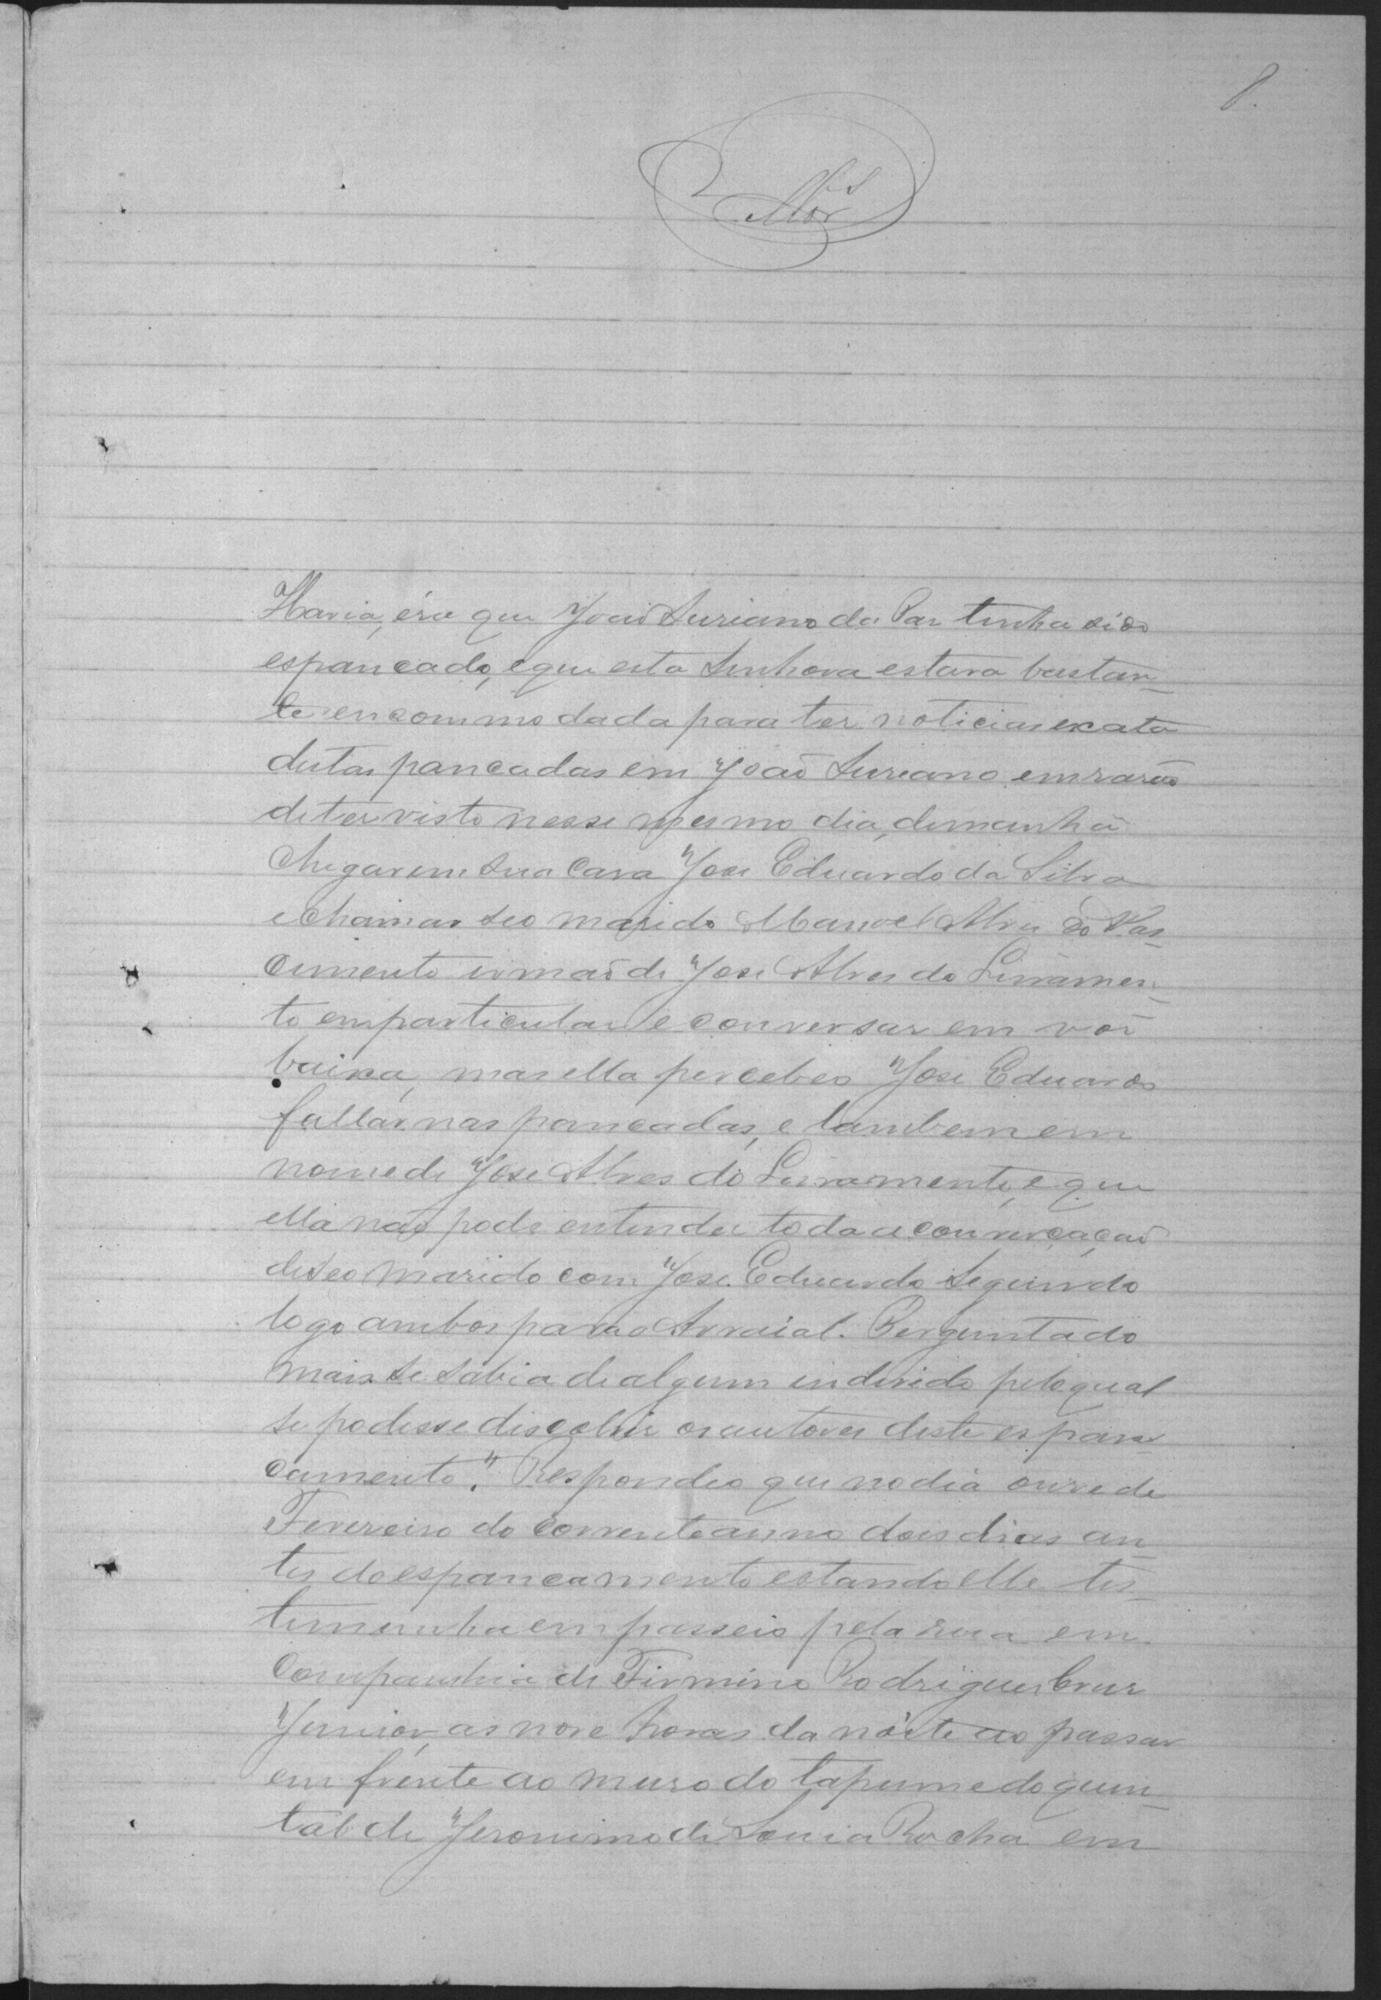 8.
Maria, éra que João Suriano da Paz tinha sido
espancado, e que esta Senhora estava bastan-
te encommodada para ter noticias exata
destas pancadas em João Suriano em razão
de ter visto nesse mesmo dia, de manhã
chegar em sua casa José Eduardo da Silva
e chamar seo marido Manoel Alves do Nas-
cimento irmão de José Alves do Livramen-
to em particular e conversar em vóz
baixa, mas ella percebeo José Eduardo
fallar nas pancadas, e tambem em
nome de José Alves do Livramento, e que
ella não pode entender toda a convercação
de seo marido com José Eduardo seguindo
logo ambos para o Arraial. Perguntado
mais se sabia de algum individo pelo qual
se podesse discobrir os autores deste espan
camento." Respondeo que no dia onze de
Fevereiro do corrente anno dois dias an-
tes do espancamento estando elle tes-
temunha em passeio pela rua em
companhia de Firmino Rodrigues Cruz
Junior, as nove horas da nóite ao passar
em frente ao muro do tapume do quin-
tal de Jeronimo de Souza Rocha em